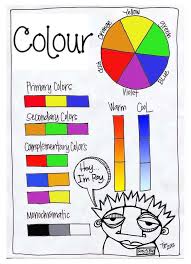 Colour
Yellow
Orange
Green
Red
Blue
Violet
Primary Colors
Secondary Colors
Complementary Colors
Monochromatic
Warm
Hey...
I'm